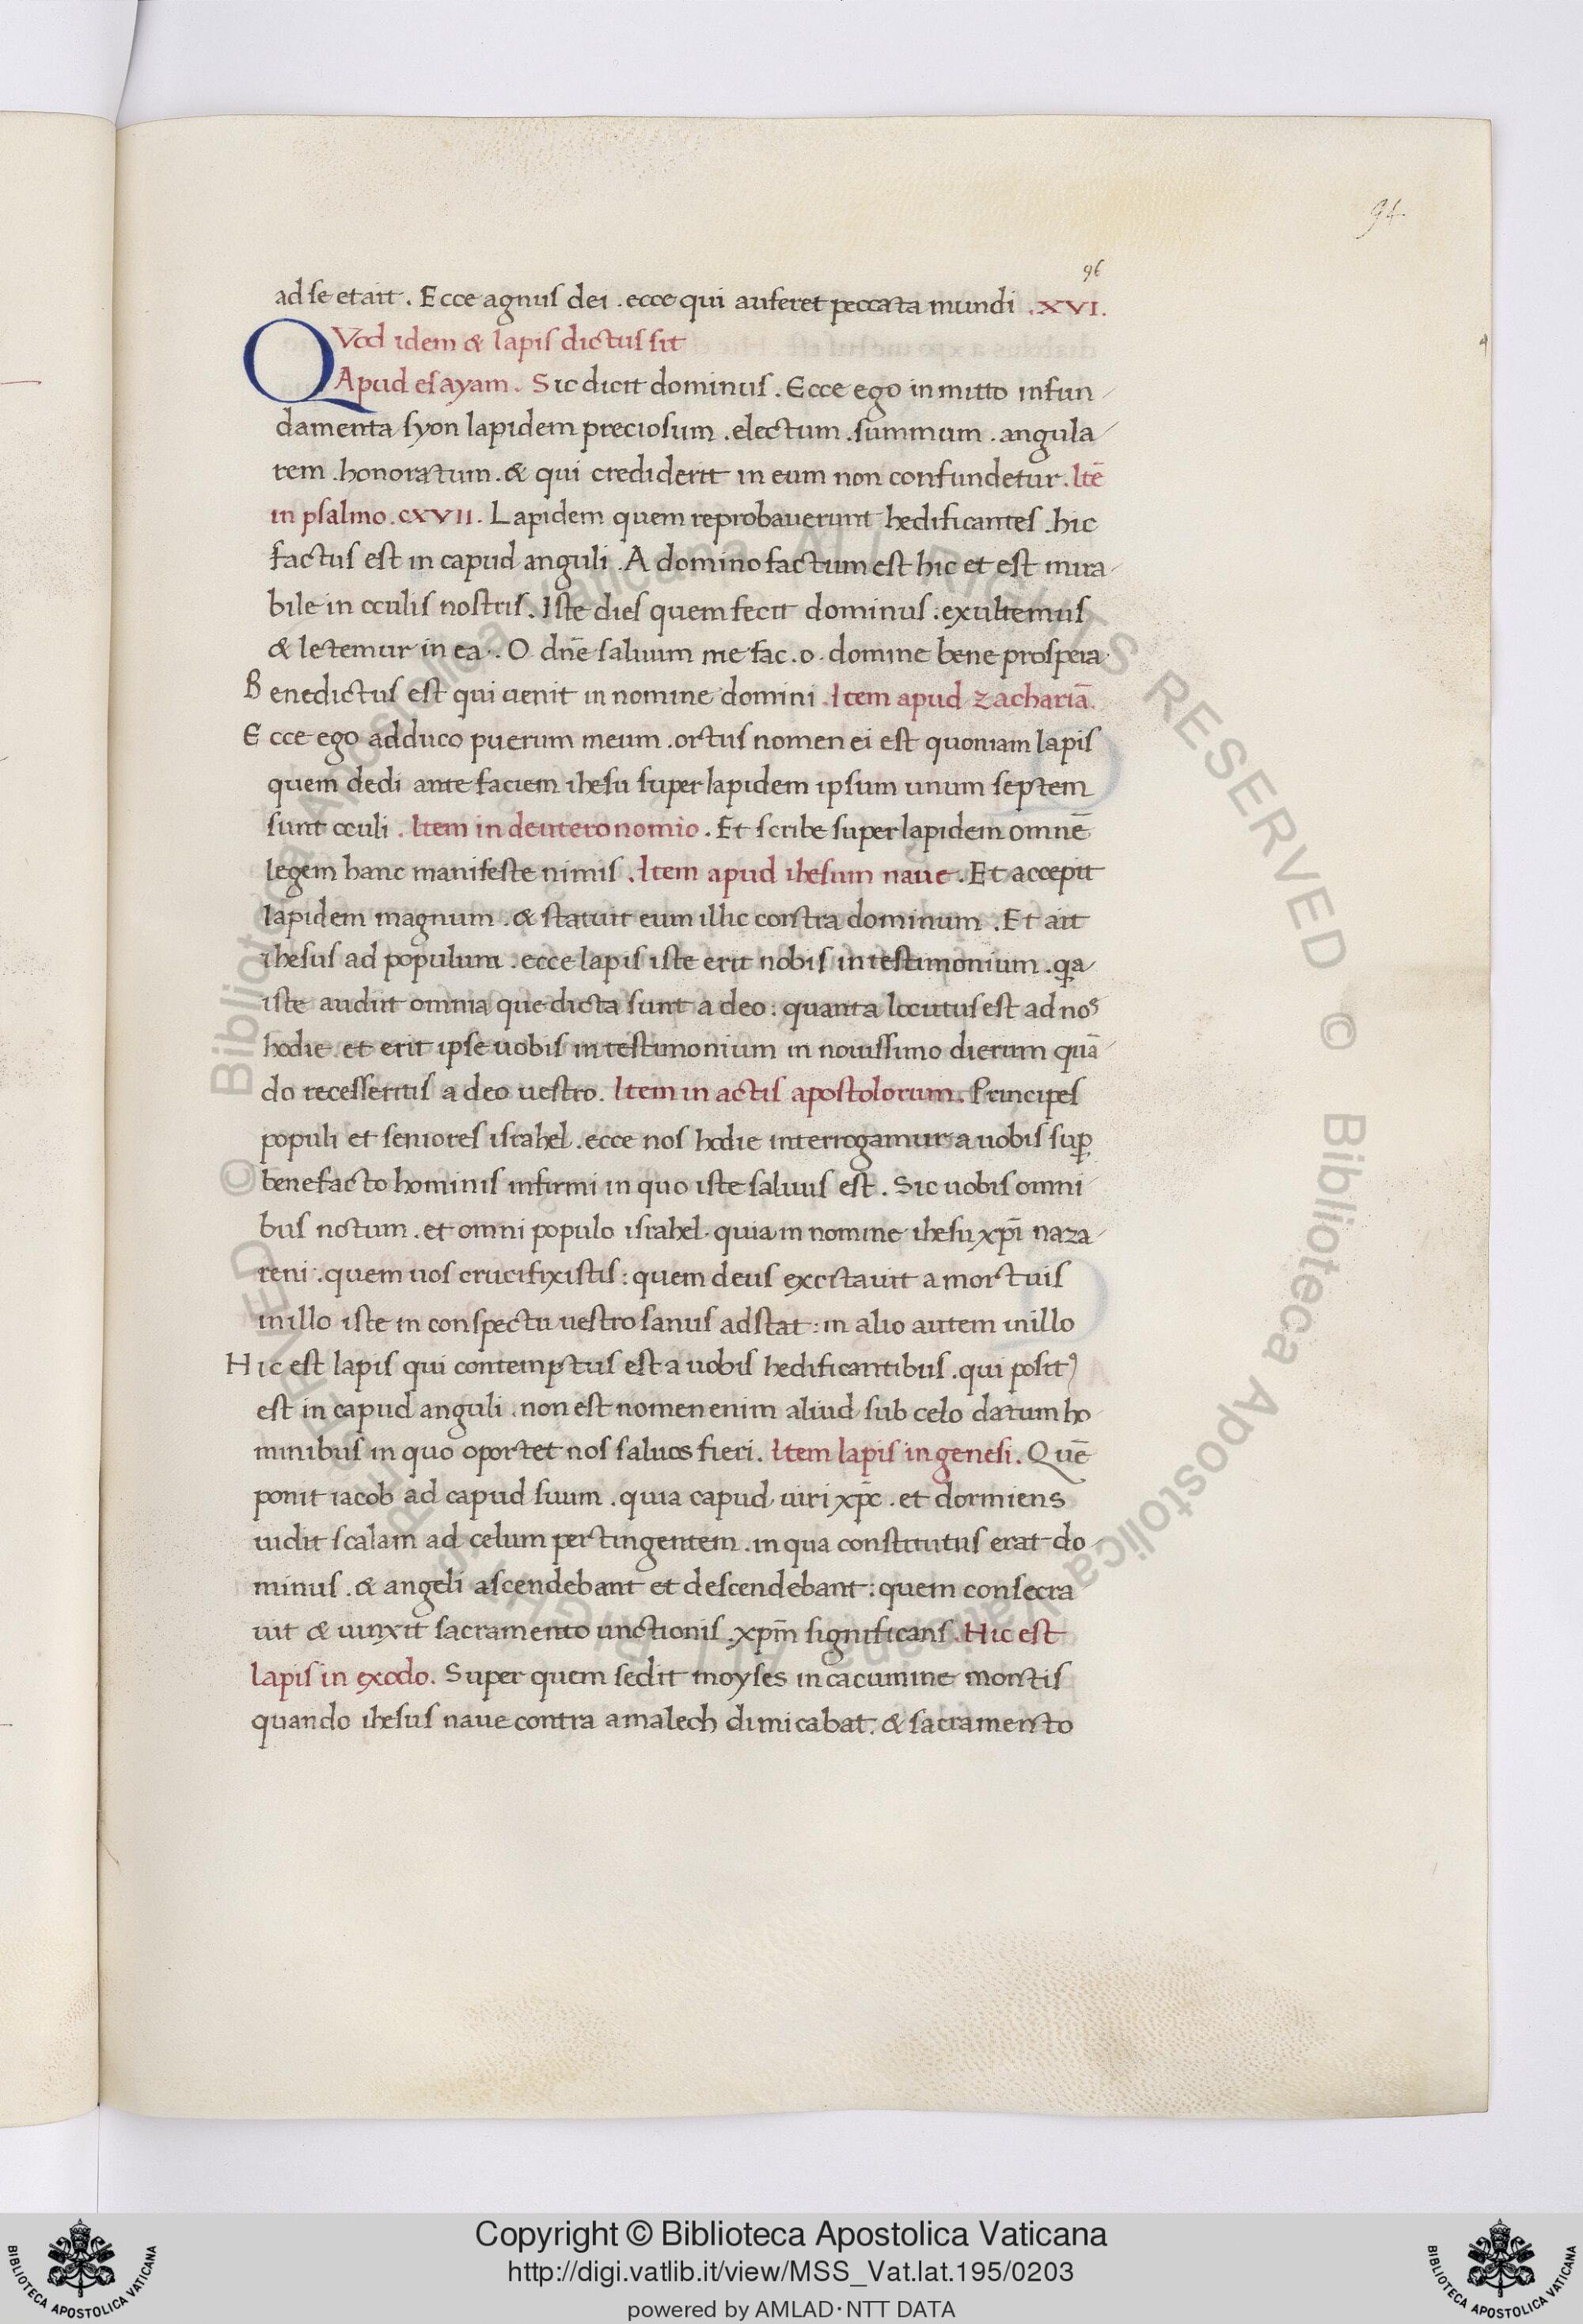 94
96
ad se et ait . Ecce agnus dei . ecce qui auferet peccata mundi . XVI.
QVod idem & lapis dictus sit
Apud esayam . Sic dicit dominus . Ecce ego in mitto in fun
damenta syon lapidem preciosum . electum . summum . angula
rem . honoratum . & qui crediderit in eum non confundetur . Itē
in psalmo . CXVII . Lapidem quem reprobauerunt hedificantes . hic
factus est in capud anguli . A domino factum est hic et est mira
bile in oculis nostris . Iste dies quem fecit dominus . exultemus
& letemur in ea . . O dn̄e saluum me fac . o . domine bene prospera
Benedictus est qui uenit in nomine domini . Item apud zachariā .
Ecce ego adduco puerum meum . ortus nomen ei est quoniam lapis
quem dedi ante faciem ihesu super lapidem ipsum unum septem
sunt oculi . Item in deuteronomio . Et scribe super lapidem omnē
legem hanc manifeste nimis . Item apud ihesum naue . Et accepit
lapidem magnum . & statuit eum illic contra dominum . Et ait
ihesus ad populum . ecce lapis iste erit nobis in testimonium . qa
iste audiit omnia que dicta sunt a deo : quanta locutus est ad nos
hodie . et erit ipse uobis in testimonium in nouissimo dierum quā
do recesseritis a deo uestro . Item in actis apostolorum . Principes
populi et seniores israhel . ecce nos hodie interrogamur a uobis sup̱
benefacto hominis infirmi in quo iste saluus est . Sic uobis omni
bus notum . et omni populo israhel . quia in nomine ihesu xp̄i naza
reni . quem uos crucifixistis : quem deus excitauit a mortuis
in illo iste in conspectu uestro sanus adstat : in alio autem in illo
Hic est lapis qui contemptus est a uobis hedificantibus . qui positꝰ
est in capud anguli . non est nomen enim aliud sub celo datum ho
minibus in quo oportet nos saluos fieri . Item lapis in genesi . Quē
ponit iacob ad capud suum . quia capud uiri xp̄c . et dormiens
uidit scalam ad celum pertingentem . in qua constitutus erat do
minus . & angeli ascendebant et descendebant : quem consecra
uit & uinxit sacramento unctionis . xpm̄ significans . Hic est
lapis in exodo . Super quem sedit moyses in cacumine montis
quando ihesus naue contra amalech dimicabat . & sacramento
© Biblioteca Apostolica Vaticana ALL RIGHTS RESERVED © Biblioteca Apostolica Vaticana ALL RIGHTS RESERVED
BIBLIOTECA APOSTOLICA VATICANA
Copyright © Biblioteca Apostolica Vaticana
http://digi.vatlib.it/view/MSS_Vat.lat.195/0203
powered by AMLAD·NTT DATA
BIBLIOTECA APOSTOLICA VATICANA